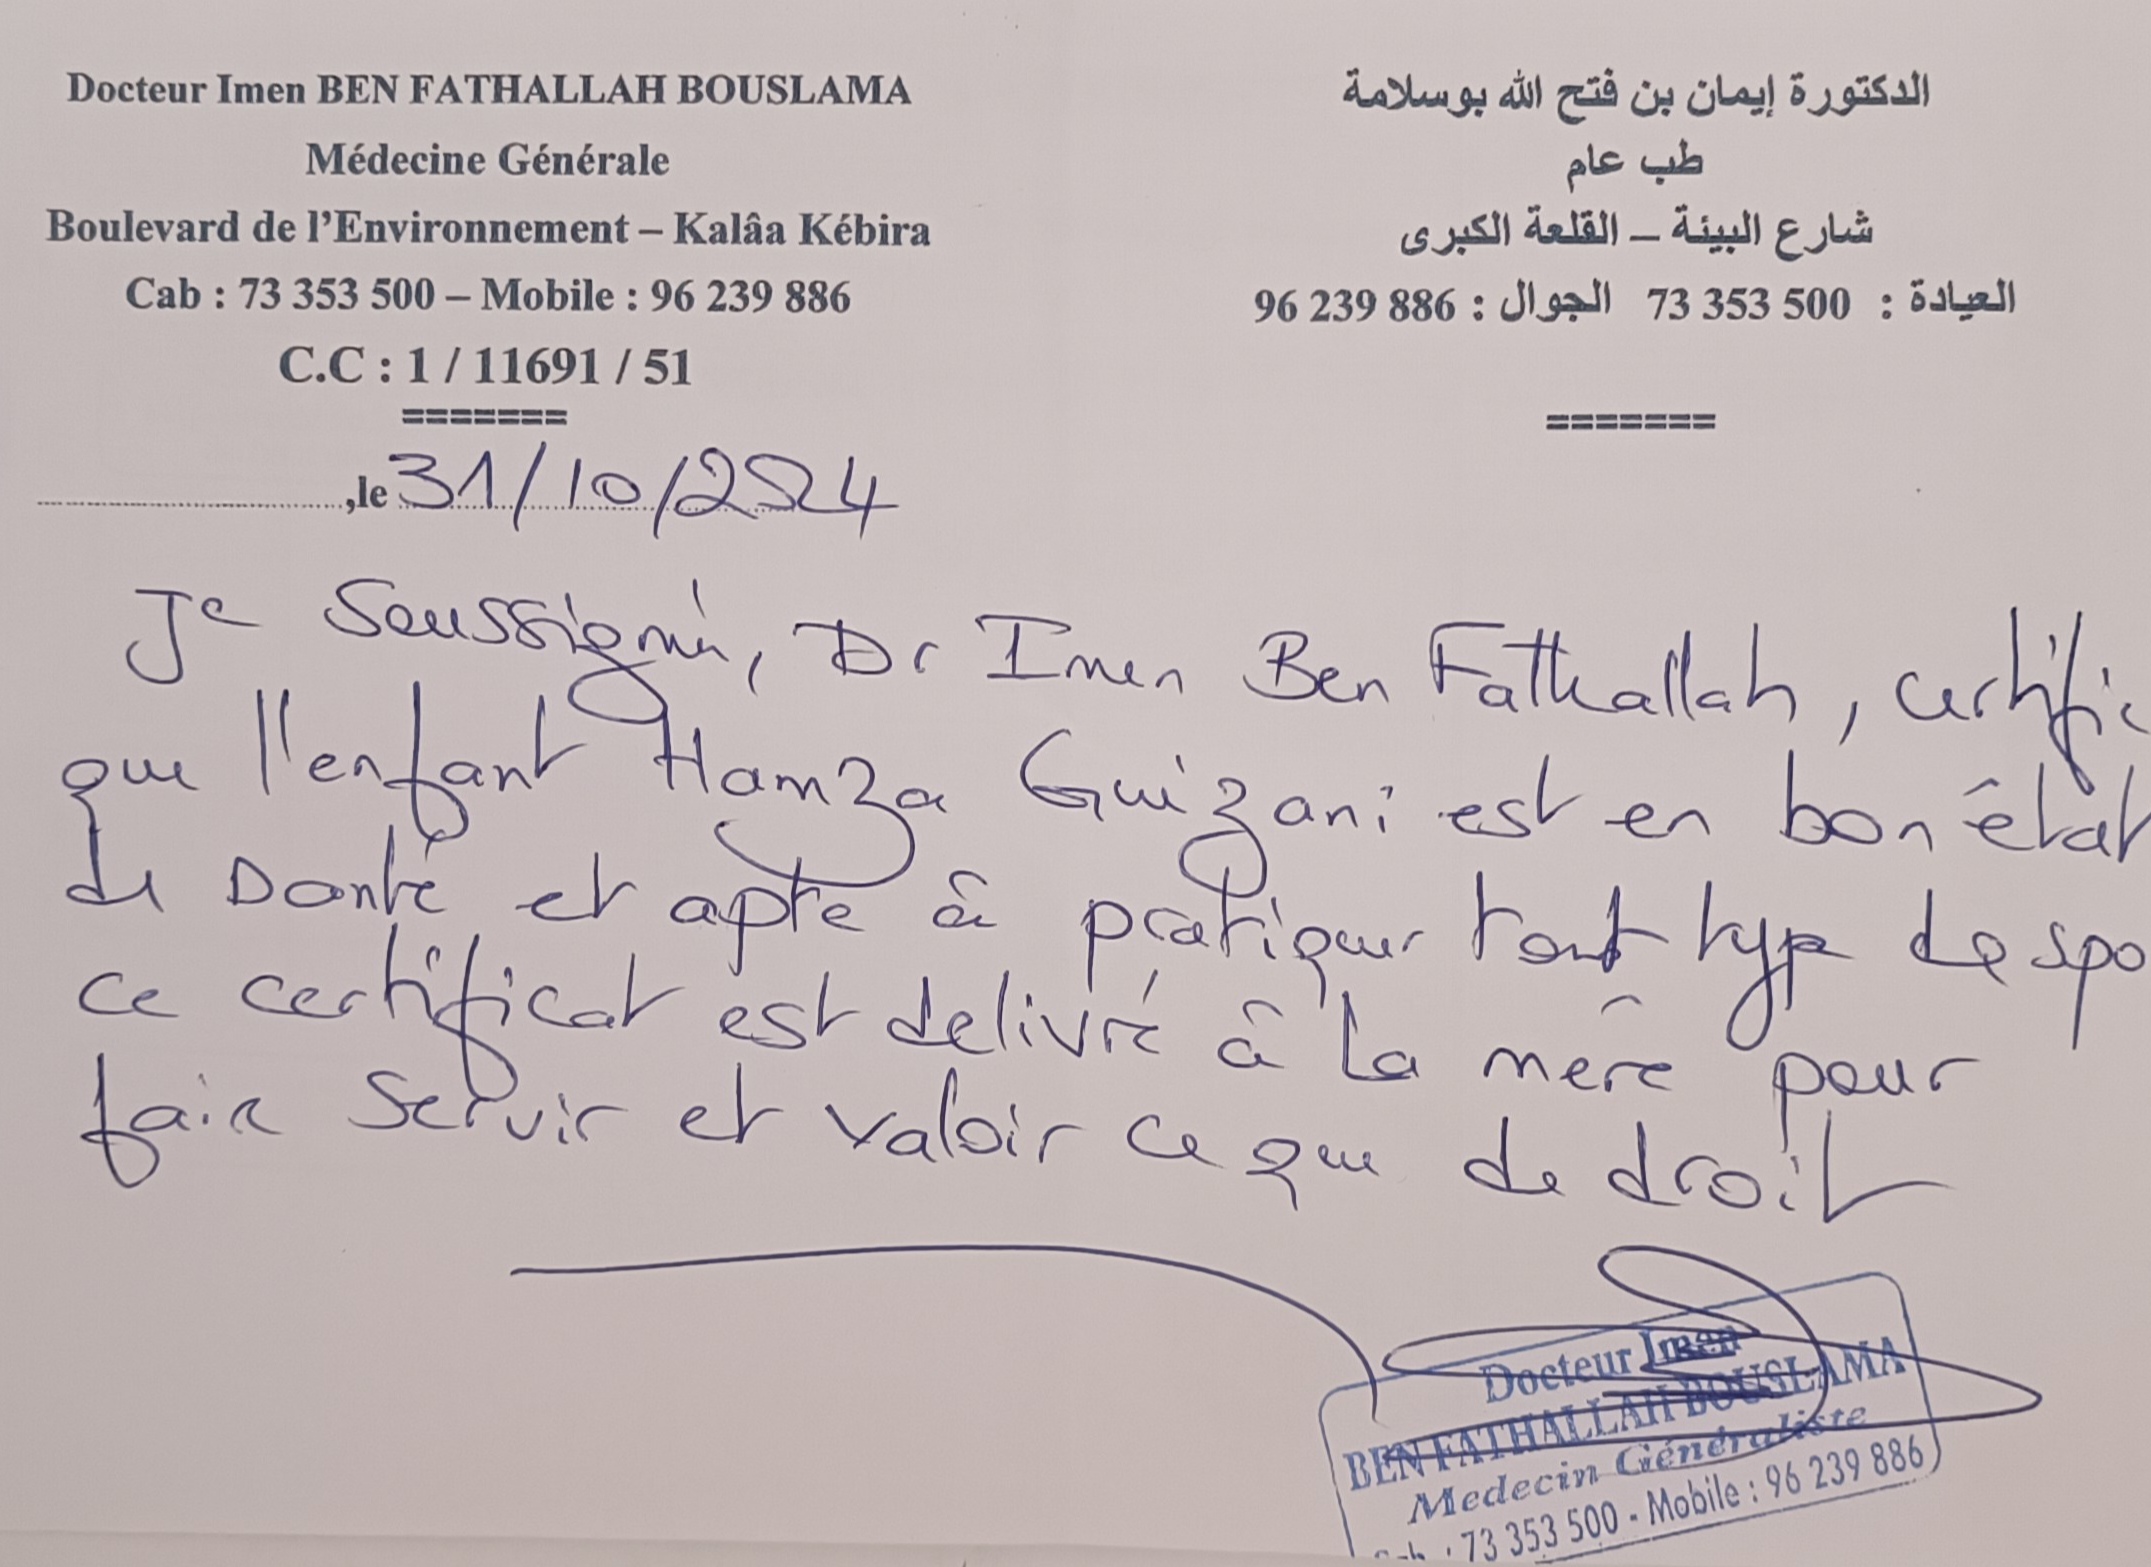 Docteur Imen BEN FATHALLAH BOUSLAMA
Médecine Générale
Boulevard de l'Environnement – Kalâa Kébira
Cab : 73 353 500 – Mobile : 96 239 886
C.C : 1 / 11691 / 51
=======
الدكتورة إيمان بن فتح الله بوسلامة
طب عام
شارع البيئة – القلعة الكبرى
العيادة : 73 353 500 الجوال : 96 239 886
=======
,le 31/10/2024
Je Soussigné, Dr Imen Ben Fathallah, certifie
que l'enfant Hamza Guizani est en bon état
de Santé et apte à pratiquer tout type de spo
ce certificat est delivré à la mère pour
faire servir et valoir ce que de droit
Docteur Imen
BEN FATHALLAH BOUSLAMA
Medecin Généraliste
: 73 353 500 - Mobile : 96 239 886